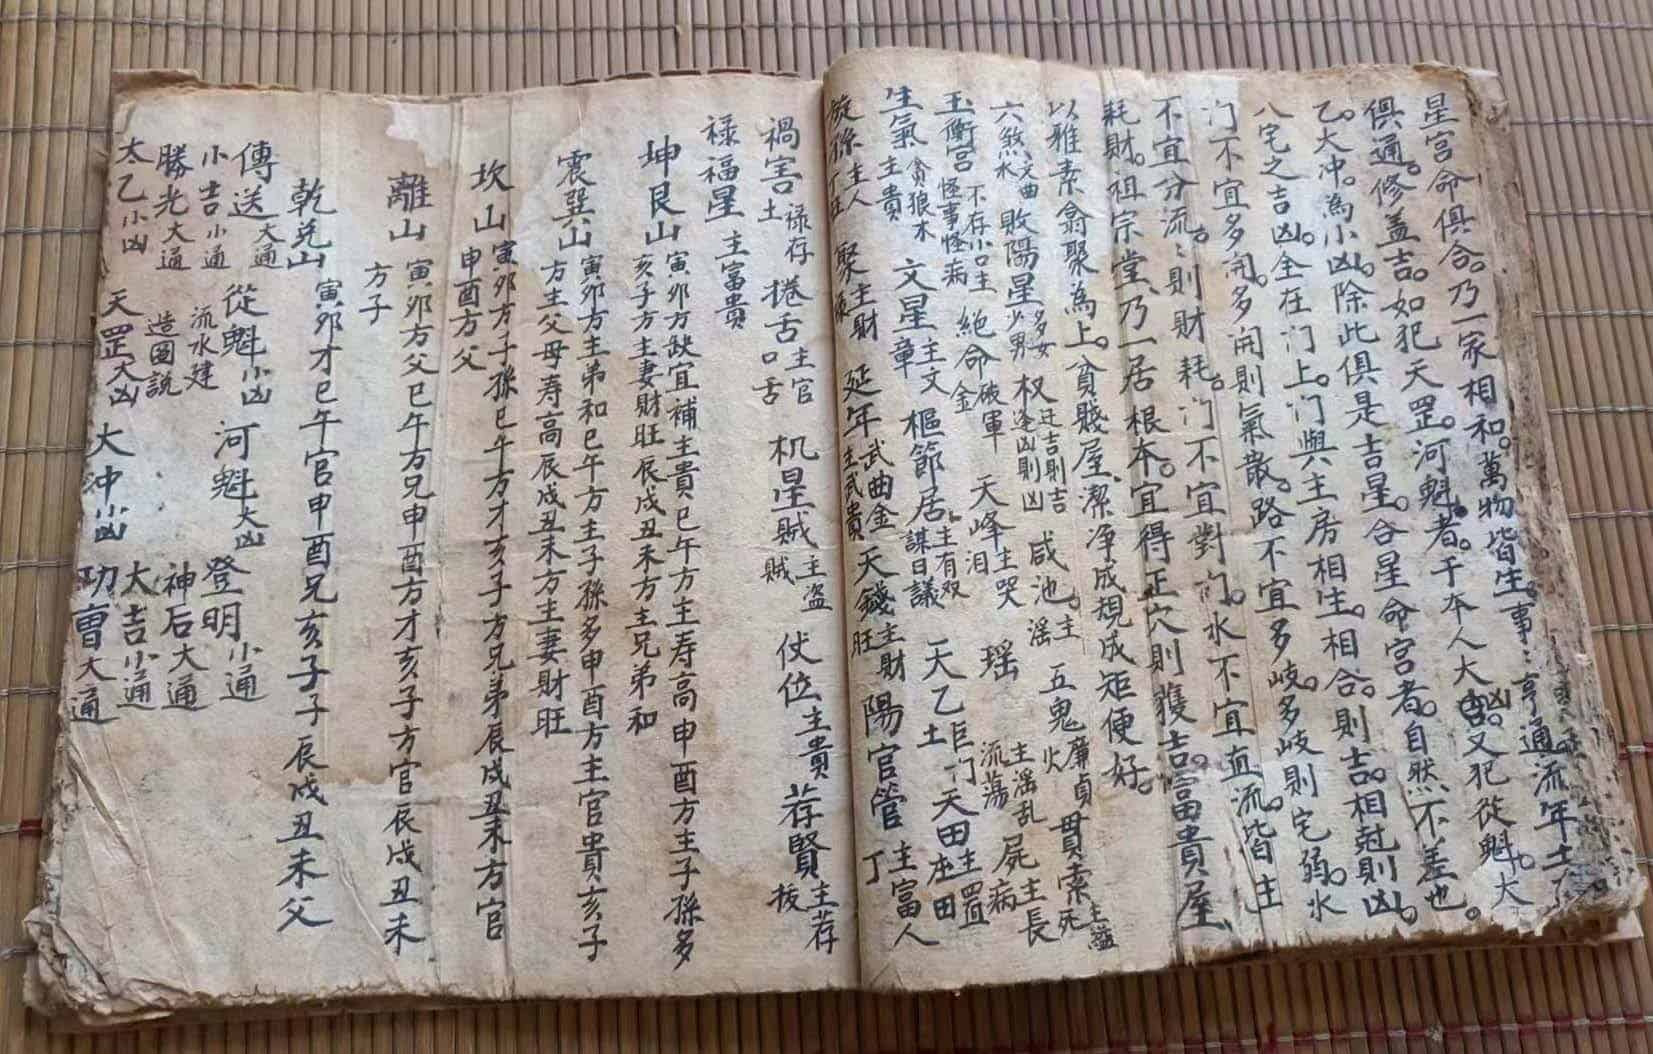 星宮命俱合。乃一家相和。萬物皆生。事々亨通流年士
俱通。修蓋吉。如犯天罡。河魁。者。于本人大凶。又犯從魁。大
乙。大冲。為小凶。除此俱是吉星。合星命宮者。自然不差也。
八宅之吉凶全在门上。门與主房相生。相合。則吉。相尅則凶。
门不宜多開。多開則氣散。路不宜多岐。多岐則宅弱。水
不宜分流々則財耗。门不宜對门。水不宜直流。皆主
耗財。祖宗堂、乃一居根本。宜得正穴則獲吉。富貴屋、
以雅素翕聚為上。貧賤屋、潔净成規成矩便好。
六煞水文曲 敗陽星多女少男 权迁吉則吉逢凶則凶 咸池主滛 五鬼火廉貞 貫索主縊死
玉衡宫不存小口主怪事怪病 絕命金破軍 天峰主哭泪 瑶主滛乱流荡 屍主長病
生氣貪狼木主貴 文星章主文 樞節居主有双謀日議 天乙土巨门 天田主置庄田
旋孫主人丁旺 聚主財 延年武曲金主武貴 天錢主財旺 陽官管主富人丁
禍害土禄存 捲舌主官口舌 机星賊主盗賊 仗位主貴 荐賢主荐拔
禄福星主富貴
坤艮山寅夘方缺宜補主貴巳午方主寿高申酉方主子孫多
亥子方主妻財旺辰戌丑未方主兄弟和
震巽山寅夘方主弟和巳午方主子孫多申酉方主官貴亥子
方主父母寿高辰戌丑未方主妻財旺
坎山寅夘方子孫巳午方才亥子方兄弟辰戌丑未方官
申酉方父
離山寅夘方父巳午方兄申酉方才亥子方官辰戌丑未
方子
乾兑山寅夘才巳午官申酉兄亥子子辰戌丑未父
傳送大通 從魁小凶 河魁大凶 登明小通
小吉小通 流水建 神后大通
勝光大通 造圖説 大吉小通
太乙小凶 天罡大凶 大冲小凶 功曹大通